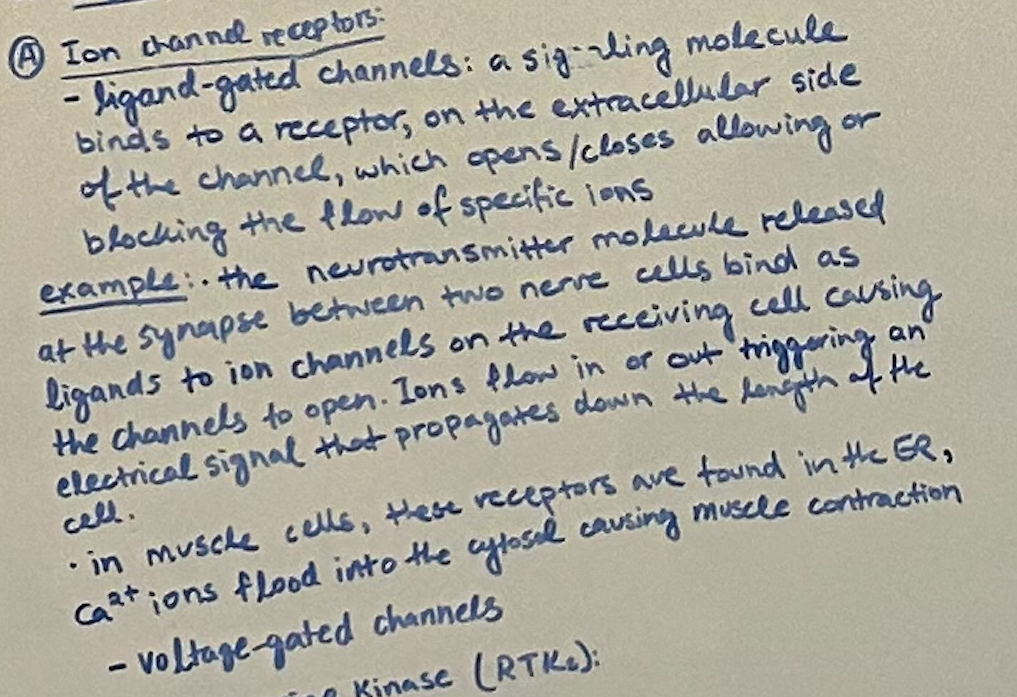 Ⓐ Ion channel receptors:
- ligand-gated channels: a signaling molecule
binds to a receptor, on the extracellular side
of the channel, which opens/closes allowing or
blocking the flow of specific ions
example: · the neurotransmitter molecule released
at the synapse between two nerve cells bind as
ligands to ion channels on the receiving cell causing
the channels to open. Ions flow in or out triggering an
electrical signal that propagates down the length of the
cell.
· in muscle cells, these receptors are found in the ER,
Ca²⁺ ions flood into the cytosol causing muscle contraction
- voltage-gated channels
Kinase (RTKs):